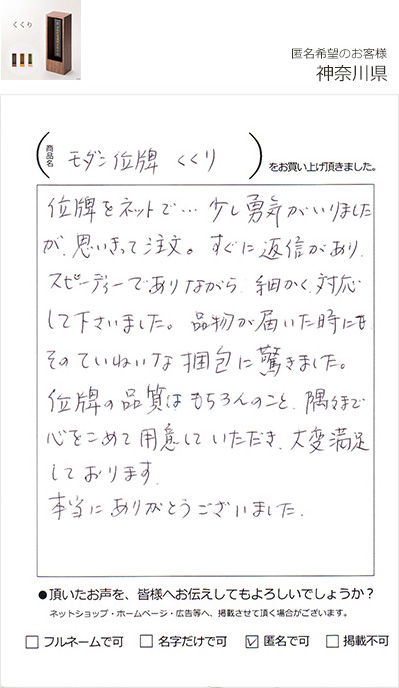 くくり
匿名希望のお客様
神奈川県
商品名
( モダン位牌 くくり ) をお買い上げ頂きました。
位牌をネットで… 少し勇気がいりました
が、思いきって注文。すぐに返信があり、
スピーディーでありながら、細かく対応
して下さいました。品物が届いた時にも
そのていねいな梱包に驚きました。
位牌の品質はもちろんのこと、隅々まで
心をこめて用意していただき、大変満足
しております。
本当にありがとうございました。
●頂いたお声を、皆様へお伝えしてもよろしいでしょうか？
ネットショップ・ホームページ・広告等へ、掲載させて頂く場合がございます。
□ フルネームで可 □ 名字だけで可 ☑ 匿名で可 □ 掲載不可